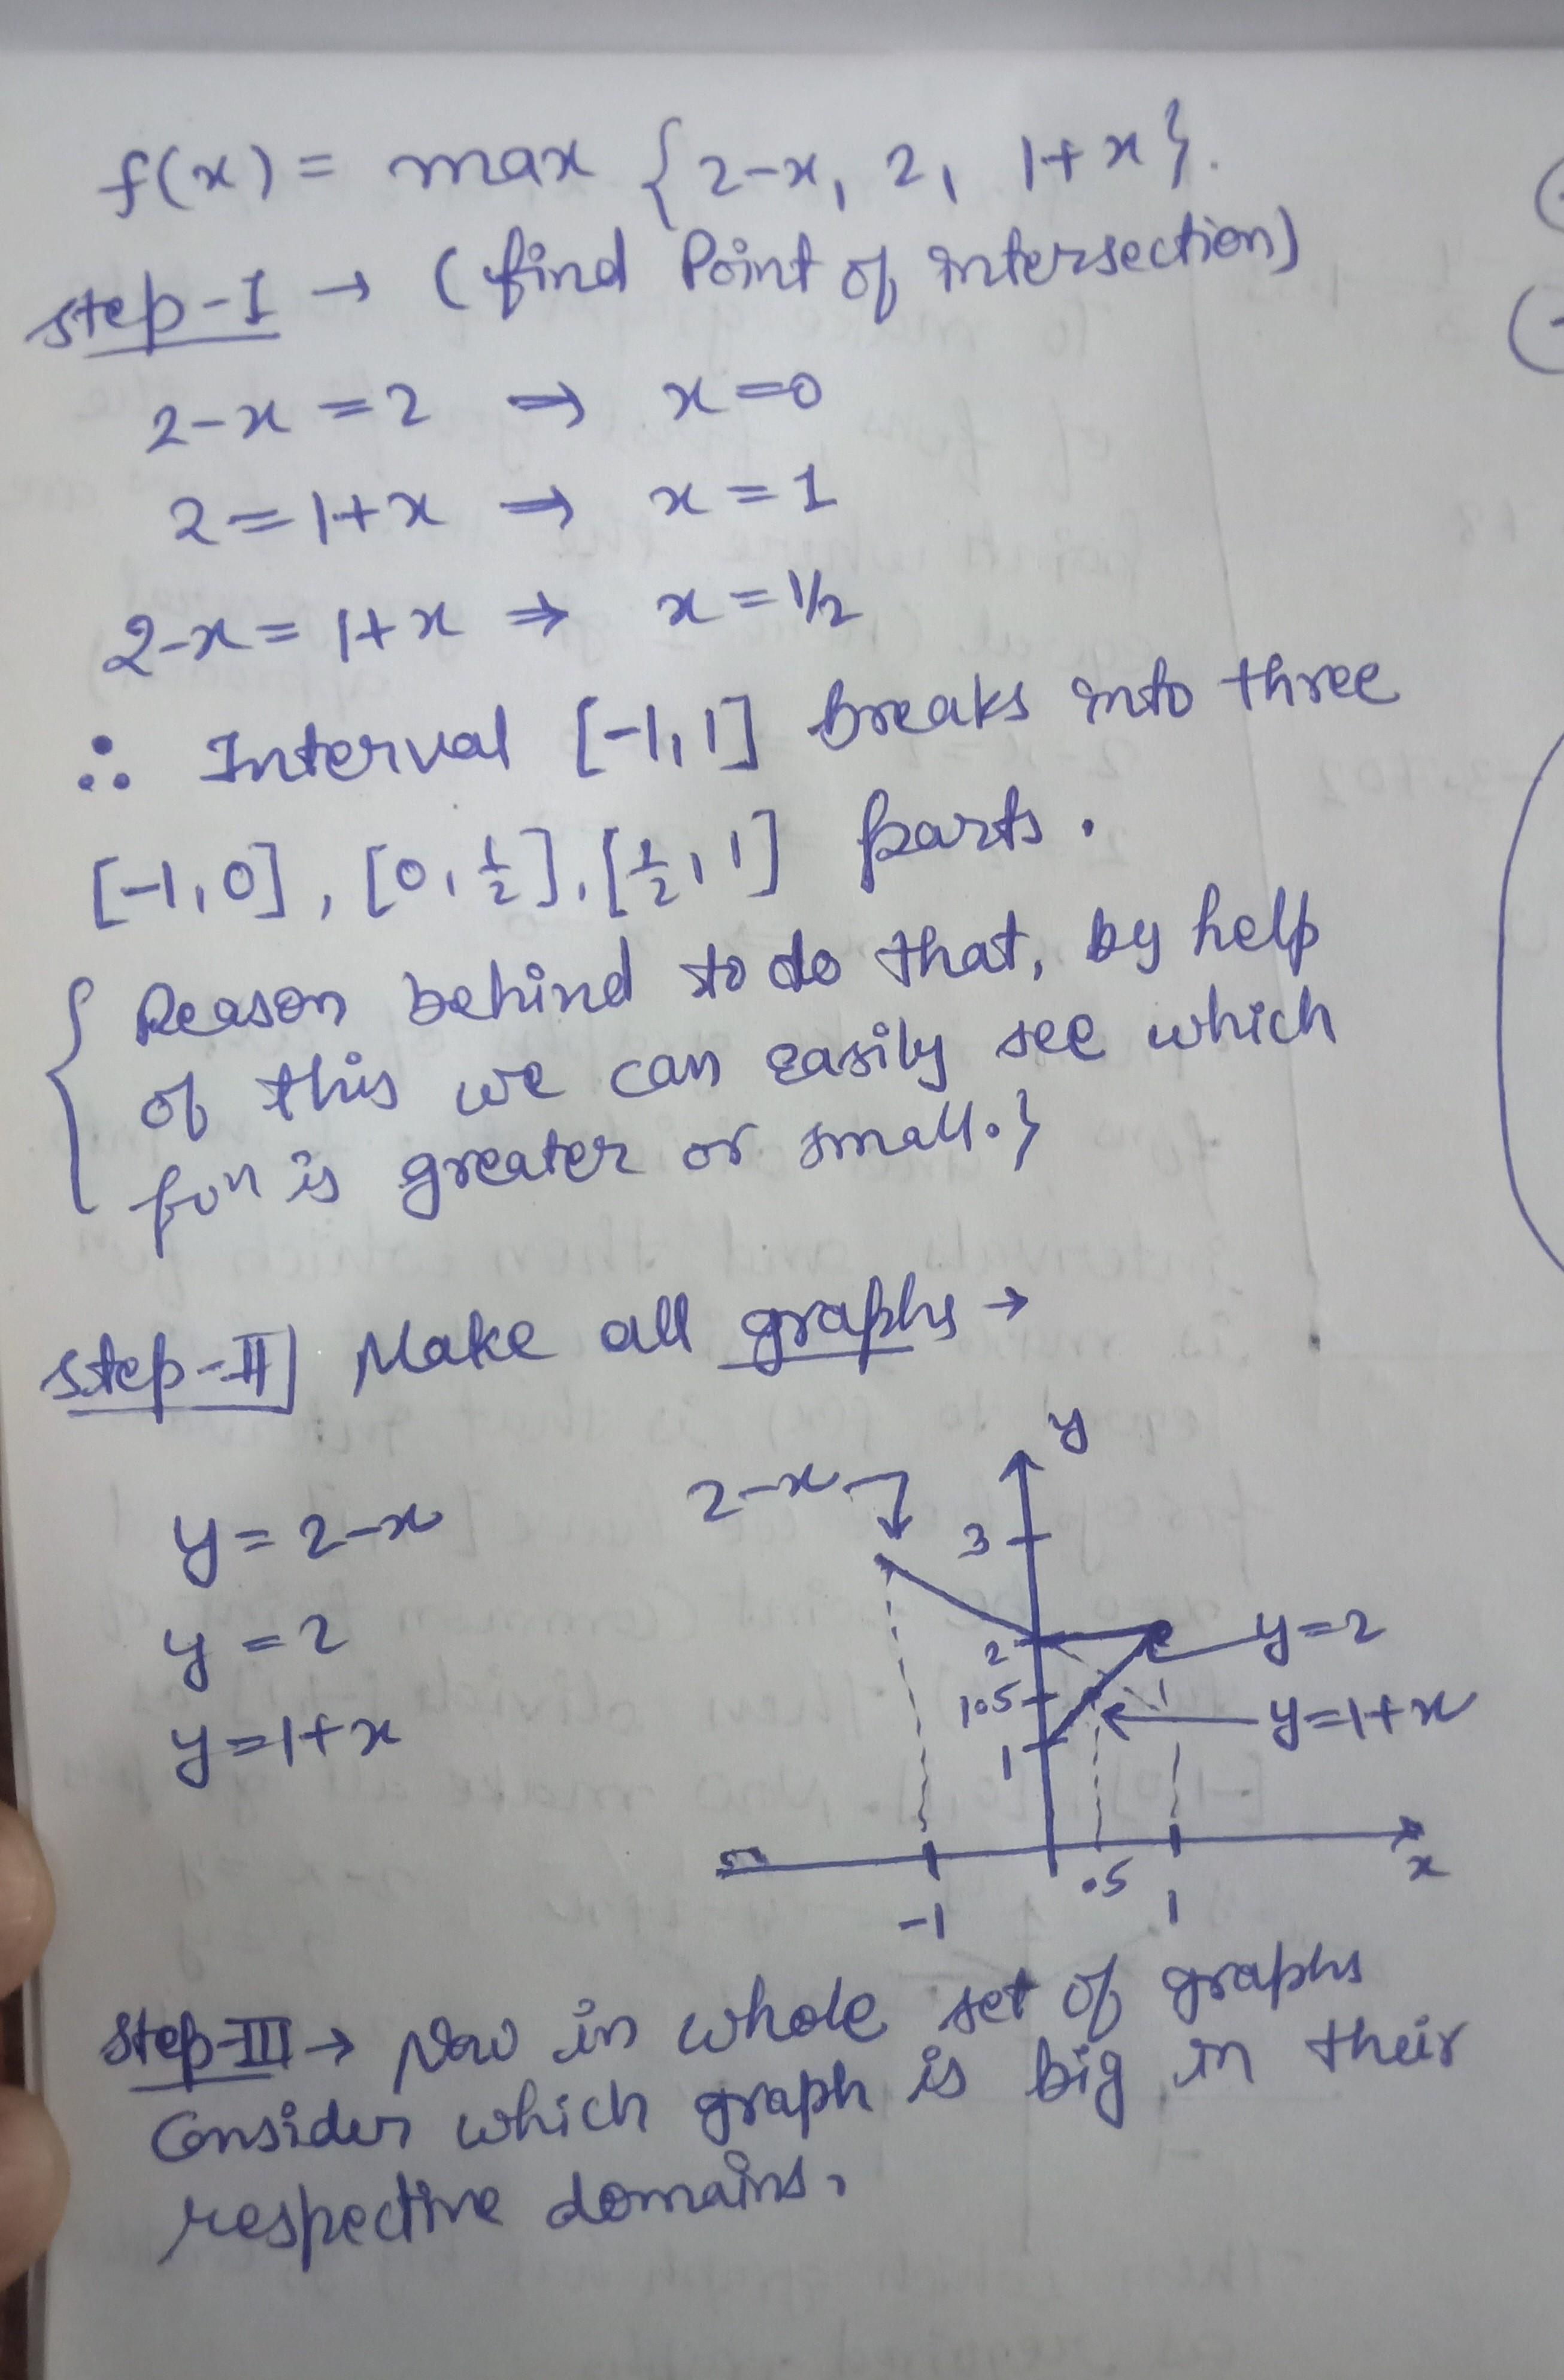 f(x) = max {2-x, 2, 1+x}.
step-I → (find Point of intersection)
2-x = 2 ⇒ x=0
2=1+x ⇒ x=1
2-x=1+x ⇒ x=1/2
∴ Interval [-1,1] breaks into three
[-1,0], [0,1/2], [1/2,1] parts.
{ Reason behind to do that, by help
of this we can easily see which
fun is greater or small.}
step-II] Make all graphs →
y
2-x
y=2-x
3
y=2
2
y=2
1.5
y=1+x
y=1+x
1
x
.5
-1
1
step-III → Now in whole set of graphs
Consider which graph is big in their
respective domains.